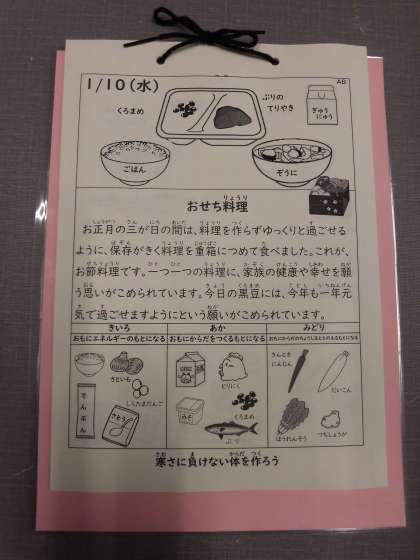 1/10(水)
AB
くろまめ
ぶりの
てりやき
ぎゅう
にゅう
ごはん
ぞうに
おせち料理
お正月の三が日の間は、料理を作らずゆっくりと過ごせる
ように、保存がきく料理を重箱につめて食べました。これが、
お節料理です。一つ一つの料理に、家族の健康や幸せを願
う思いがこめられています。今日の黒豆には、今年も一年元
気で過ごせますようにという願いがこめられています。
きいろ
あか
みどり
おもにエネルギーのもとになる
おもにからだをつくるもとになる
おもにからだのちょうしをととのえるもとになる
さといも
しらたまだんご
でんぷん
さとう
とりにく
みそ
くろまめ
ぶり
きんとき
にんじん
だいこん
ほうれんそう
つちしょうが
寒さに負けない体を作ろう